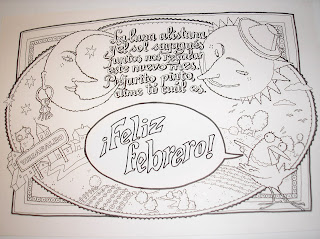 La luna alistana
y el sol sayagués
juntos nos regalan
este nuevo mes.
Pajarito pinto,
dime tú cuál es.
¡Feliz
febrero!